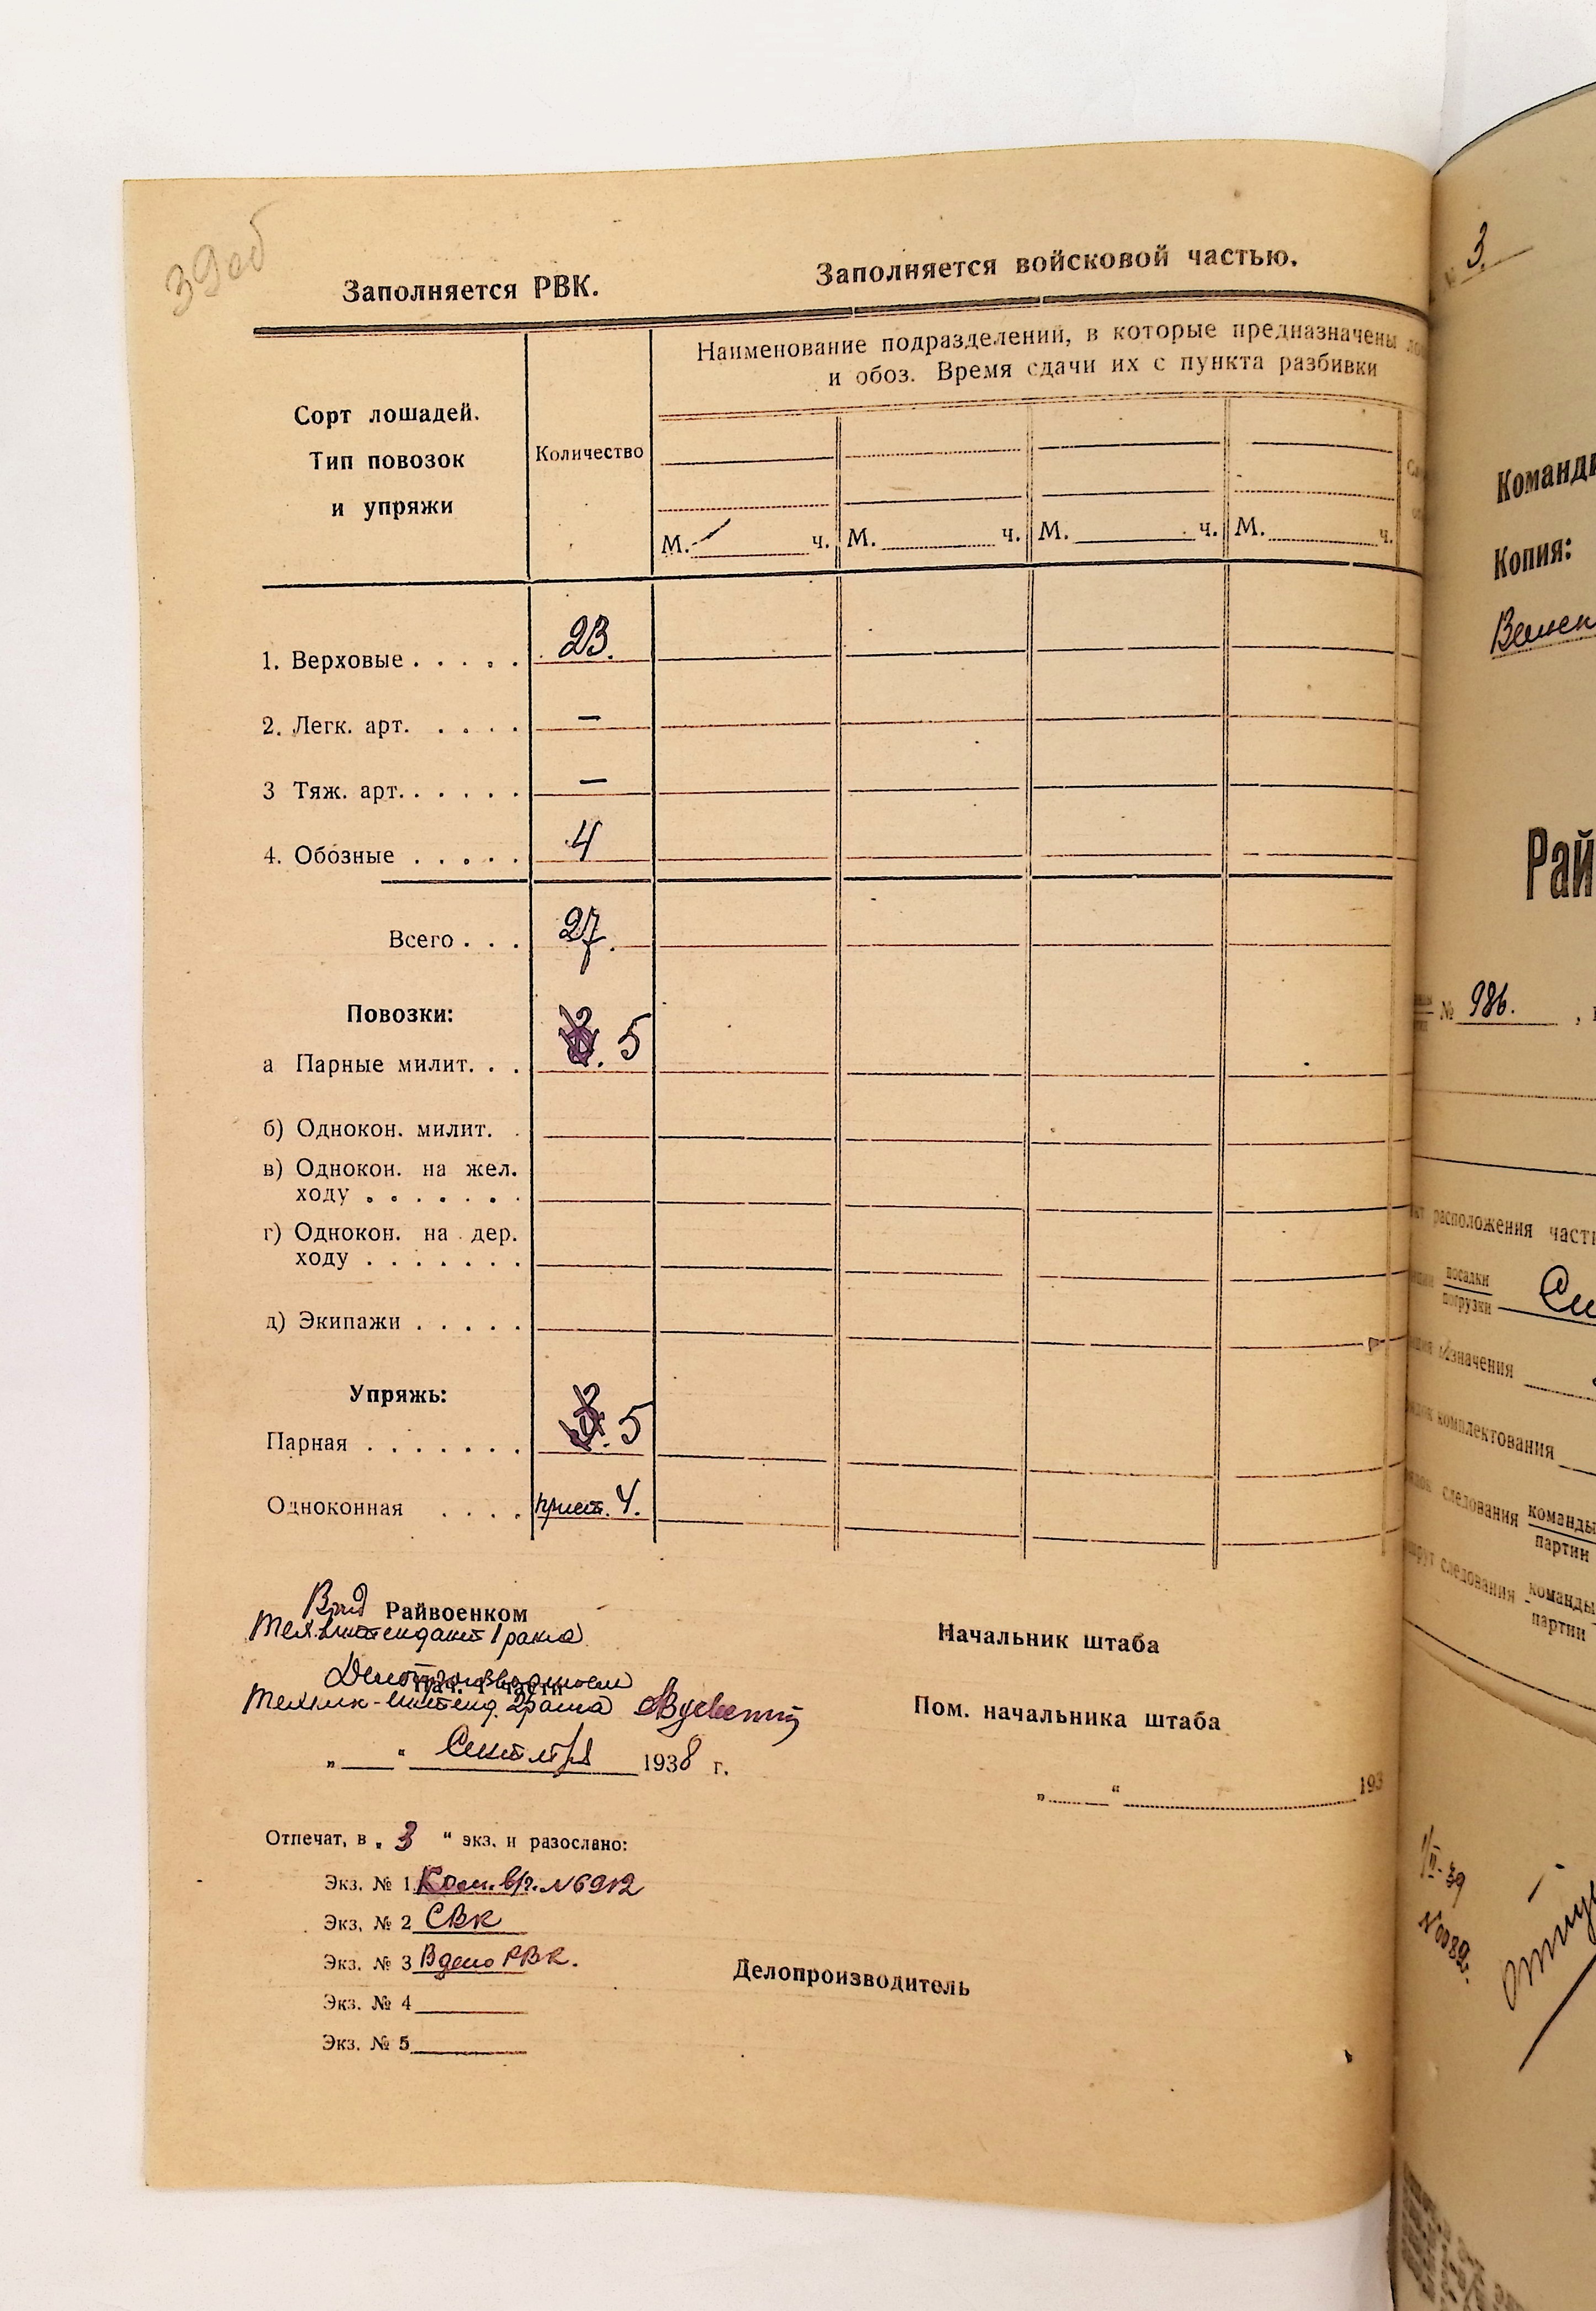 39об
Заполняется РВК.
Заполняется войсковой частью.
Сорт лошадей.
Тип повозок
и упряжи
Количество
Наименование подразделений, в которые предназначены
и обоз. Время сдачи их с пункта разбивки
М. ч. М. ч. М. ч. М. ч.
1. Верховые . . . . . 23.
2. Легк. арт. . . . . —
3 Тяж. арт. . . . . . —
4. Обозные . . . . . 4
Всего . . . 27.
Повозки:
а Парные милит. . . 5
б) Однокон. милит. .
в) Однокон. на жел.
ходу . . . . . . .
г) Однокон. на дер.
ходу . . . . . . .
д) Экипажи . . . . .
Упряжь:
Парная . . . . . . . 5
Одноконная . . . . 4.
Врид Райвоенком
Тех. интендант 1 ранга
Делопроизводитель
Нач. 1 части
Техник-интенд. 2 ранга
„ “ Сентября 1938 г.
Начальник штаба
Пом. начальника штаба
„ “ 193
Отпечат. в „ 3 “ экз. и разослано:
Экз. № 1 Ком. в/ч. № 6912
Экз. № 2 СВК
Экз. № 3 В дело РВК.
Экз. № 4
Экз. № 5
Делопроизводитель
3.
Копия:
Рай
№ 986. ,
расположения
посадки
погрузки
назначения
комплектования
следования команды
партии
следования команды
партии